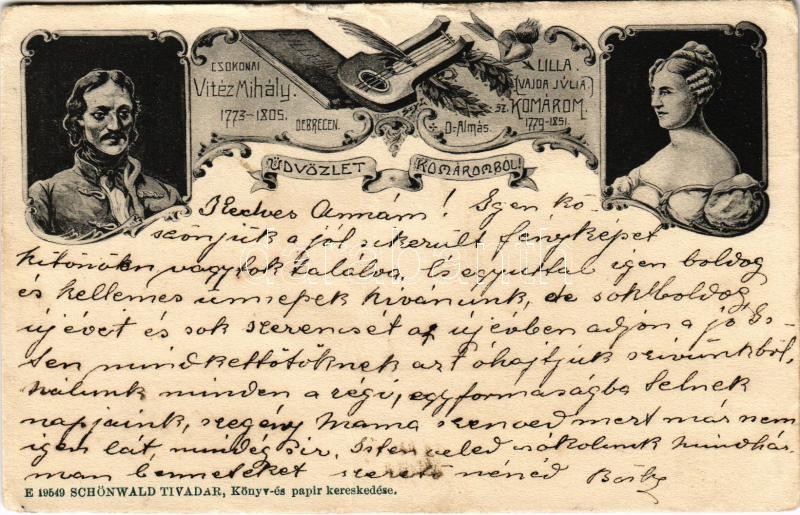 CSOKONAI
Vitéz Mihály.
1773-1805.
DEBRECEN.
LILLA
(VAJDA JÚLIA)
SZ. KOMÁROM.
D-Almás.
1779-1851.
ÜDVÖZLET KOMÁROMBÓL!
Kedves Annám! Igen kö-
szönjük a jól sikerült fényképet
kitünően vagytok találva. És egyuttal igen boldog
és kellemes ünnepek kivánunk, de sok boldog
új évet és sok szerencsét az új évben adjon a jó Is-
ten mindkettőtöknek azt óhajtjuk szivünkből,
nálunk minden a régi, egyformaságba telnek
napjaink, szegény Mama szenved mert már nem
igen lát, mindég sir. Isten veled csókolunk mindhár-
man benneteket szerető nénéd
E 19549 SCHÖNWALD TIVADAR, Könyv-és papir kereskedése.
darabanth